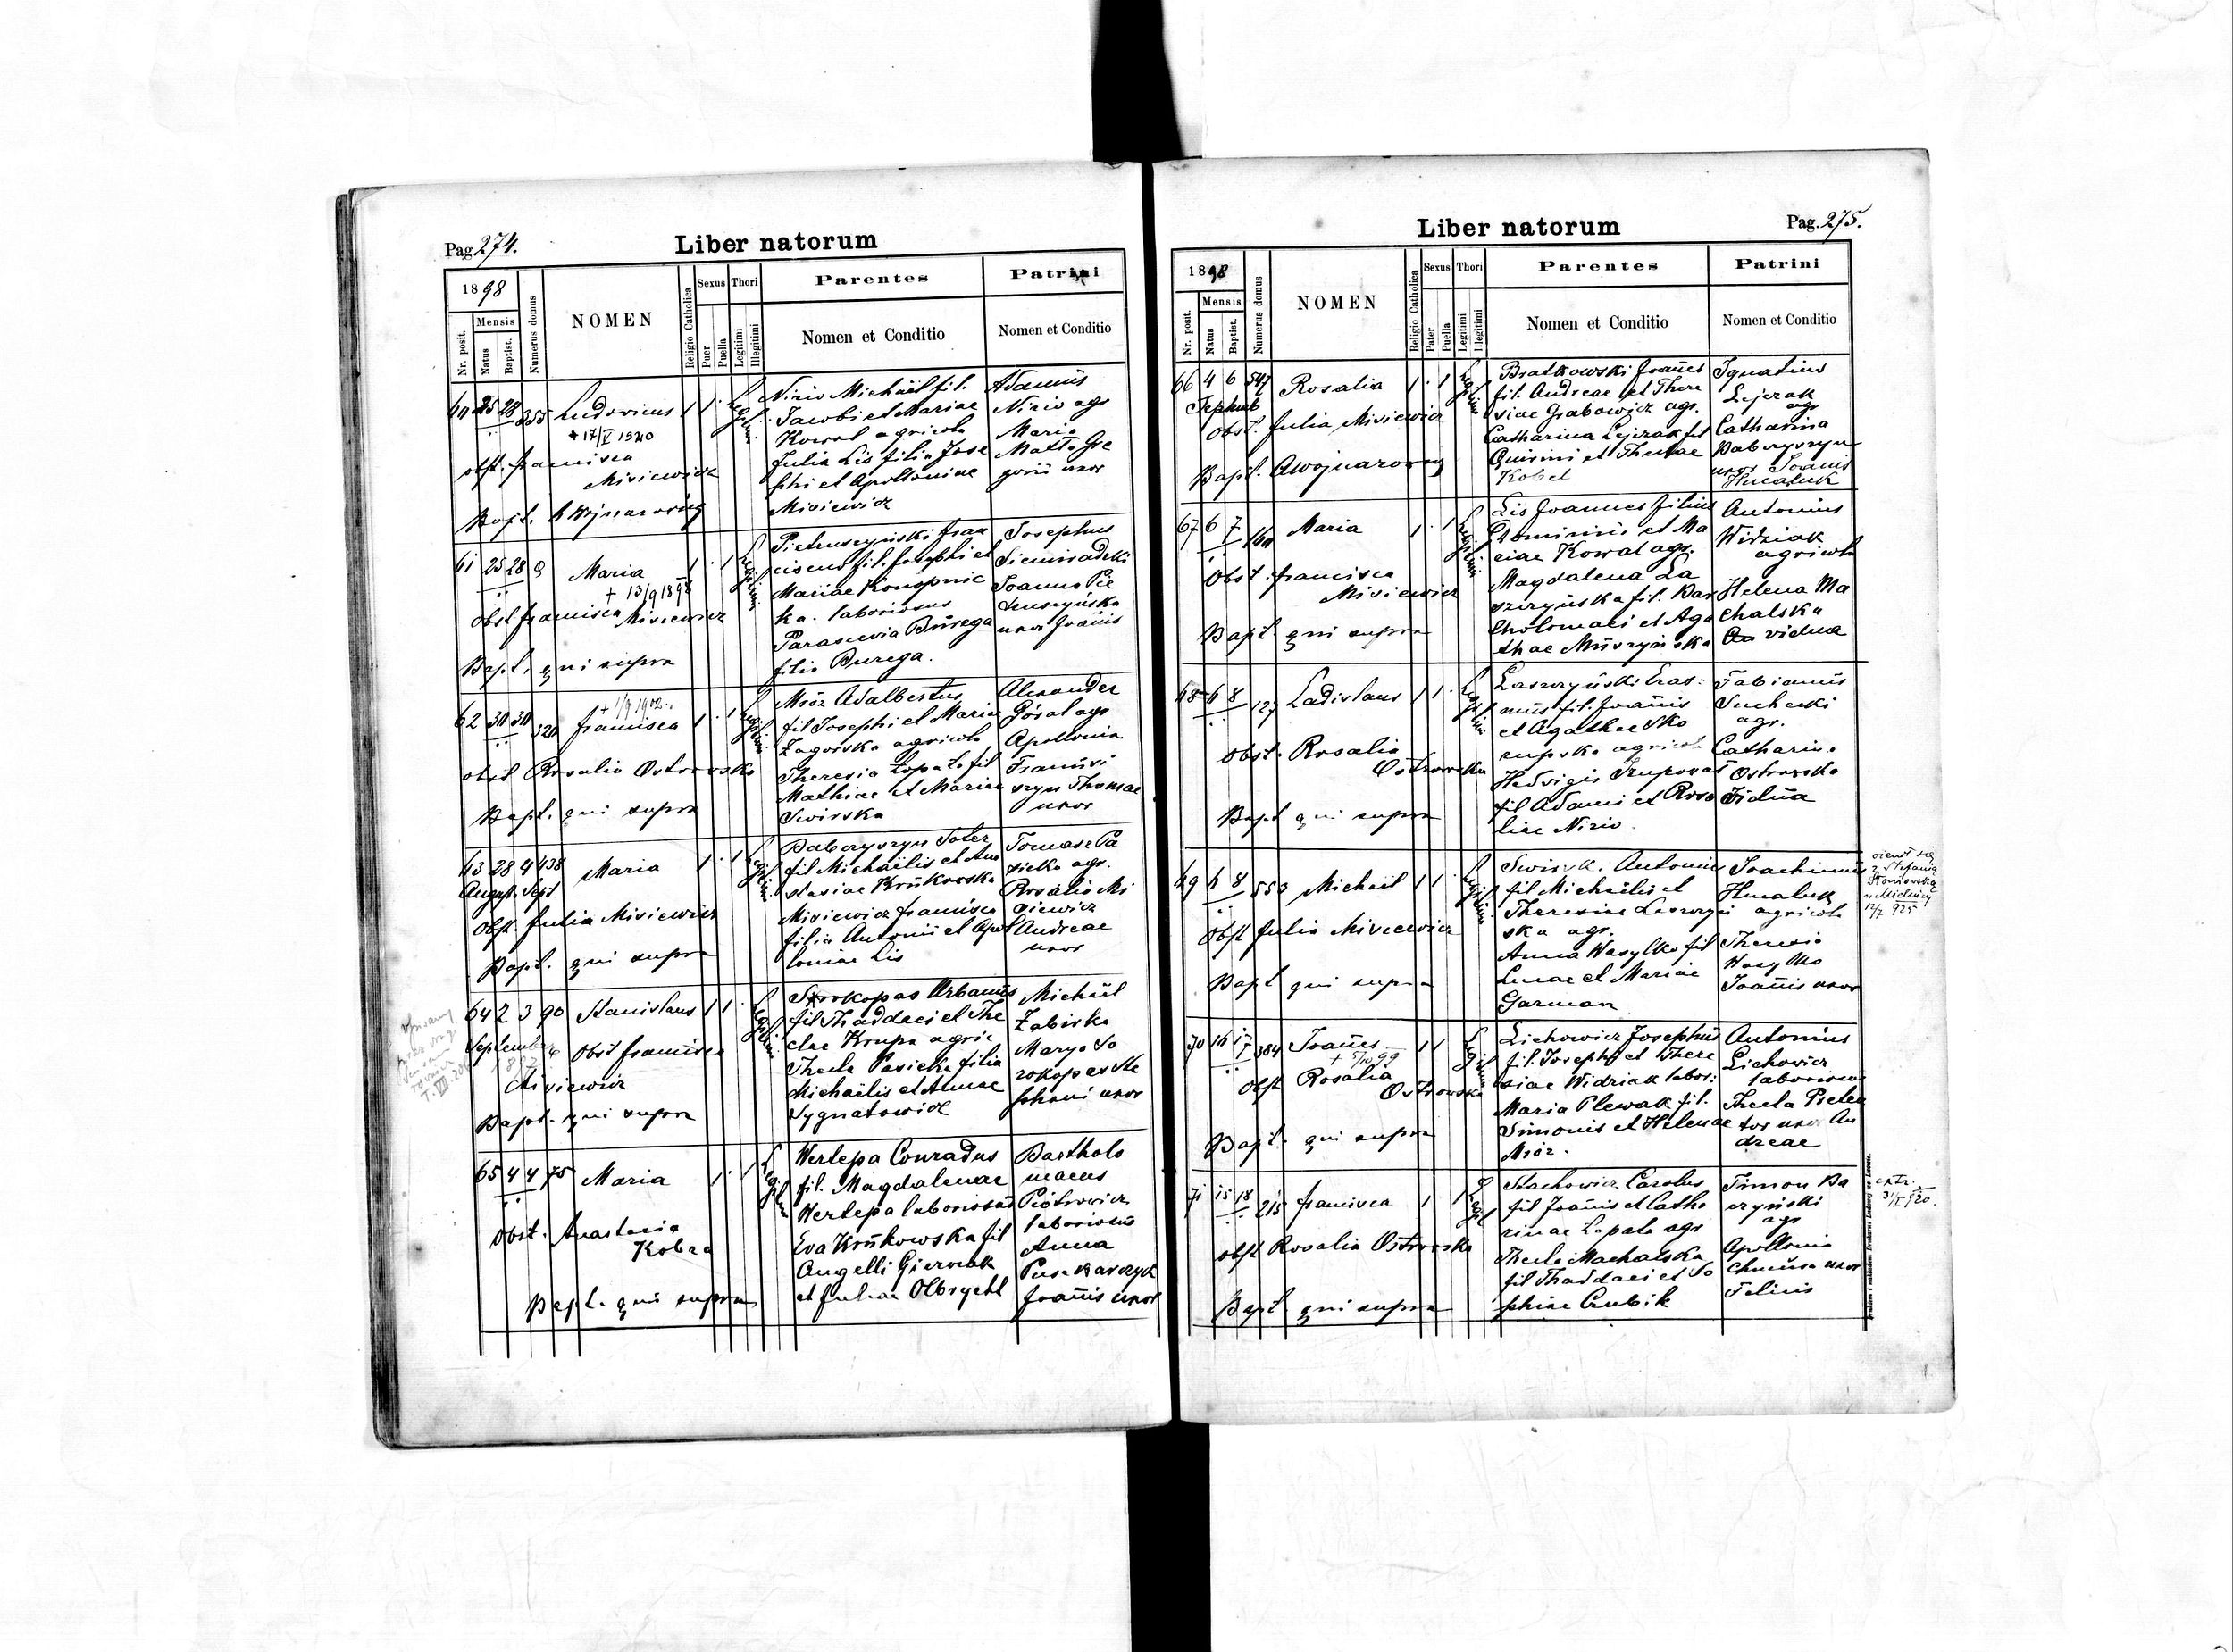 Pag. 274.
Liber natorum
1898
Mensis
Nr. posit.
Natus
Baptist.
Numerus domus
NOMEN
Religio Catholica
Sexus
Puer
Puella
Thori
Legitimi
Illegitimi
Parentes
Nomen et Conditio
Patrini
Nomen et Conditio
25 28 355 Ludovicus 1 1
+ 17/V 1940
obst. Francisca
Misiewicz
Bapt. A Wojnarowicz
Nizio Michaël fil.
Jacobi et Mariae
Kowal agricola
Julia Lis filia Jose
phi et Apolloniae
Misiewicz
Adamus
Nizio agr
Maria
gorii uxor
61 25 28 9 Maria 1 1
+ 13/9 1898
obst Francisca Misiewicz
Bapt. qui supra
Pietruszyński Fran
ciscus fil. Josephi et
Mariae Konopnic
ka. laboriosus
Parascevia Burega
filia Burega.
Josephus
Siemiradzki
Joanna Pie
truszyńska
uxor Joañis
62 30 30 Francisca 1 1
+ 1/9 1902
obst Rosalia Ostrowska
Bapt. qui supra
Mróz Adalbertus
fil Josephi et Mariae
Zagórska agricola
Theresia Łopata fil
Mathiae et Mariae
Swirska
Alexander
Góral agr
Apollonia
szyn Thomae
uxor
63 28 4 438 Maria 1 1
August. Sept
Obst. Julia Misiewicz
Bapt. qui supra
fil Michaëlis et Ana
stasiae Krukowska
Misiewicz Francisca
filia Antonii et Apol
loniae Lis
Tomasz Pa
siecka agr.
Rosalia Mi
siewicz
Andreae
uxor
64 2 3 90 Stanislaus 1 1
Septembr
Obst Francisca
Misiewicz
Bapt. qui supra
Sorokopas Urbanus
fil Thaddaei et The
clae Krupa agric
Thecla Pasieka filia
Michaëlis et Annae
Sygnatowicz
Michael
Żabirka
Marya So
rokopas Ste
phani uxor
65 4 4 75 Maria 1 1
Obst. Anastasia
Kobza
Bapt. qui supra
Wertepa Conradus
fil. Magdalenae
Wertepa laboriosus
Eva Krukowska fil
Angelli Gierczak
et Juliae Olbrycht
Bartholo
maeus
Piotrowicz
laboriosus
Anna
Joañis uxor
Pag. 275.
Liber natorum
1898
Mensis
Nr. posit.
Natus
Baptist.
Numerus domus
NOMEN
Religio Catholica
Sexus
Pater
Puella
Thori
Legitimi
Illegitimi
Parentes
Nomen et Conditio
Patrini
Nomen et Conditio
66 4 6 547 Rosalia 1 1
Septemb
Obst. Julia Misiewicz
Bapt. A Wojnarowicz
Bratkowski Joañes
fil. Andreae et There
siae Grabowicz agr.
Catharina Lejzak fil
Quirini et Theclae
Kobel
Ignatius
Lejzak
agr
Catharina
uxor Joañis
67 6 7 Maria 1 1
Obst. Francisca
Misiewicz
Bapt. qui supra
Lis Joannes filius
Dominici et Ma
riae Kowal agr.
Magdalena La
szczyńska fil. Bar
tholomaei et Aga
thae Muszyńska
Antonius
Widziak
agricola
Helena Ma
chalska
vidua
68 6 8 127 Ladislaus 1 1
Obst. Rosalia
Ostrowska
Bapt qui supra
Laszczyński Eras:
mus fil. Joañis
et Agathae Sko
rupska agricola
Hedvigis
fil Adami et Rosa
liae Nizio.
Fabianus
Suchecki
agr.
Catharina
Ostrowska
Vidua
69 6 8 553 Michaël 1 1
Obst Julia Misiewicz
Bapt qui supra
Antonius
fil Michaëlis et
Theresiae Laszczyń
ska agr.
Anna Wasylko fil
Lucae et Mariae
Garman
Joachimus
agricola
Theresia
Wasylko
Joañis uxor
12/7 925
70 16 17 384 Joañes 1 1
+ 5/10 99
Obst Rosalia
Ostrowska
Bapt. qui supra
Lichowicz Josephus
fil. Josephi et There
siae Widziak labor:
Maria Plewak fil.
Simonis et Helenae
Mróz.
Antonius
Lichowicz
laboriosus
Thecla
uxor An
dreae
71 15 18 215 Francisca 1 1
Obst Rosalia Ostrowska
Bapt qui supra
Stachowicz Carolus
fil Joañis et Catha
rinae Łopata agr
Thecla Machalska
fil Thaddaei et So
phiae Ciubik
Simon Ba
czyński
agr
Apollonia
uxor
Felicis